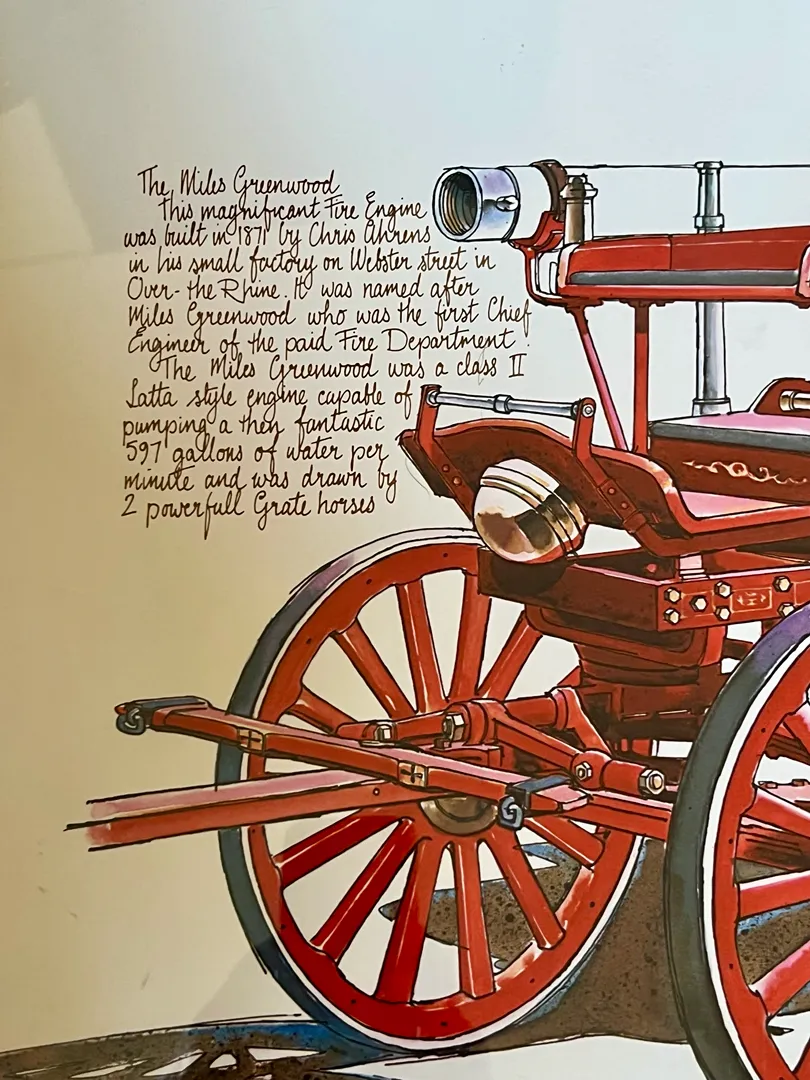 The Miles Greenwood
This magnificant Fire Engine
was built in 1871 by Chris Ahrens
in his small factory on Webster street in
Over-the Rhine. It was named after
Miles Greenwood who was the first Chief
Engineer of the paid Fire Department.
The Miles Greenwood was a class II
Latta style engine capable of
pumping a then fantastic
597 gallons of water per
minute and was drawn by
2 powerfull Grate horses